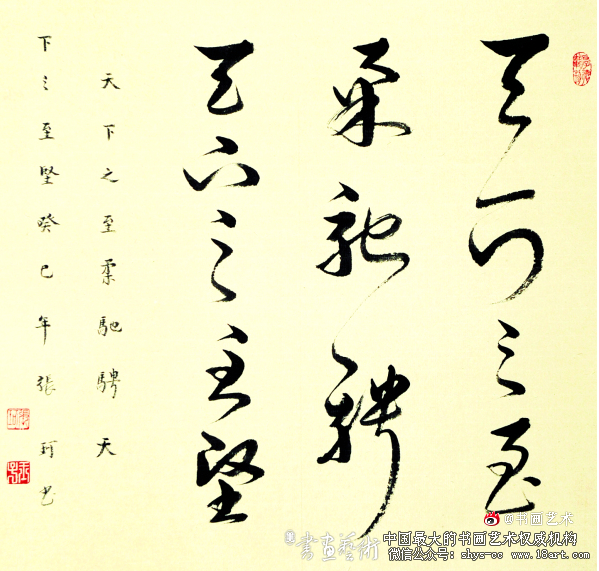 天下之至
柔馳騁
天下之至堅
天下之至柔馳騁天
下之至堅癸巳年張珂書
@书画艺术
書画藝術
中国最大的书画艺术权威机构
微信公众号: shys-cc www.18art.com